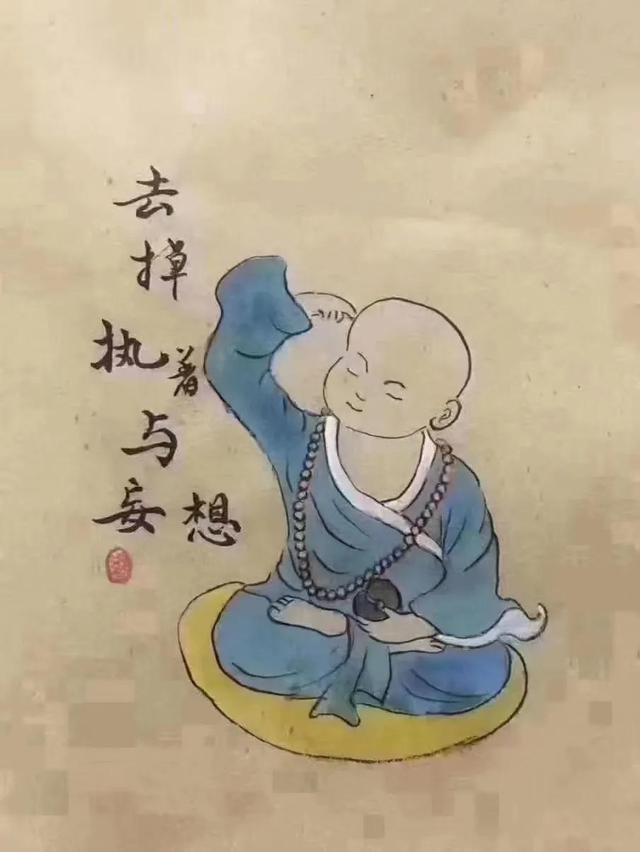 去
掉
执著
与
妄想